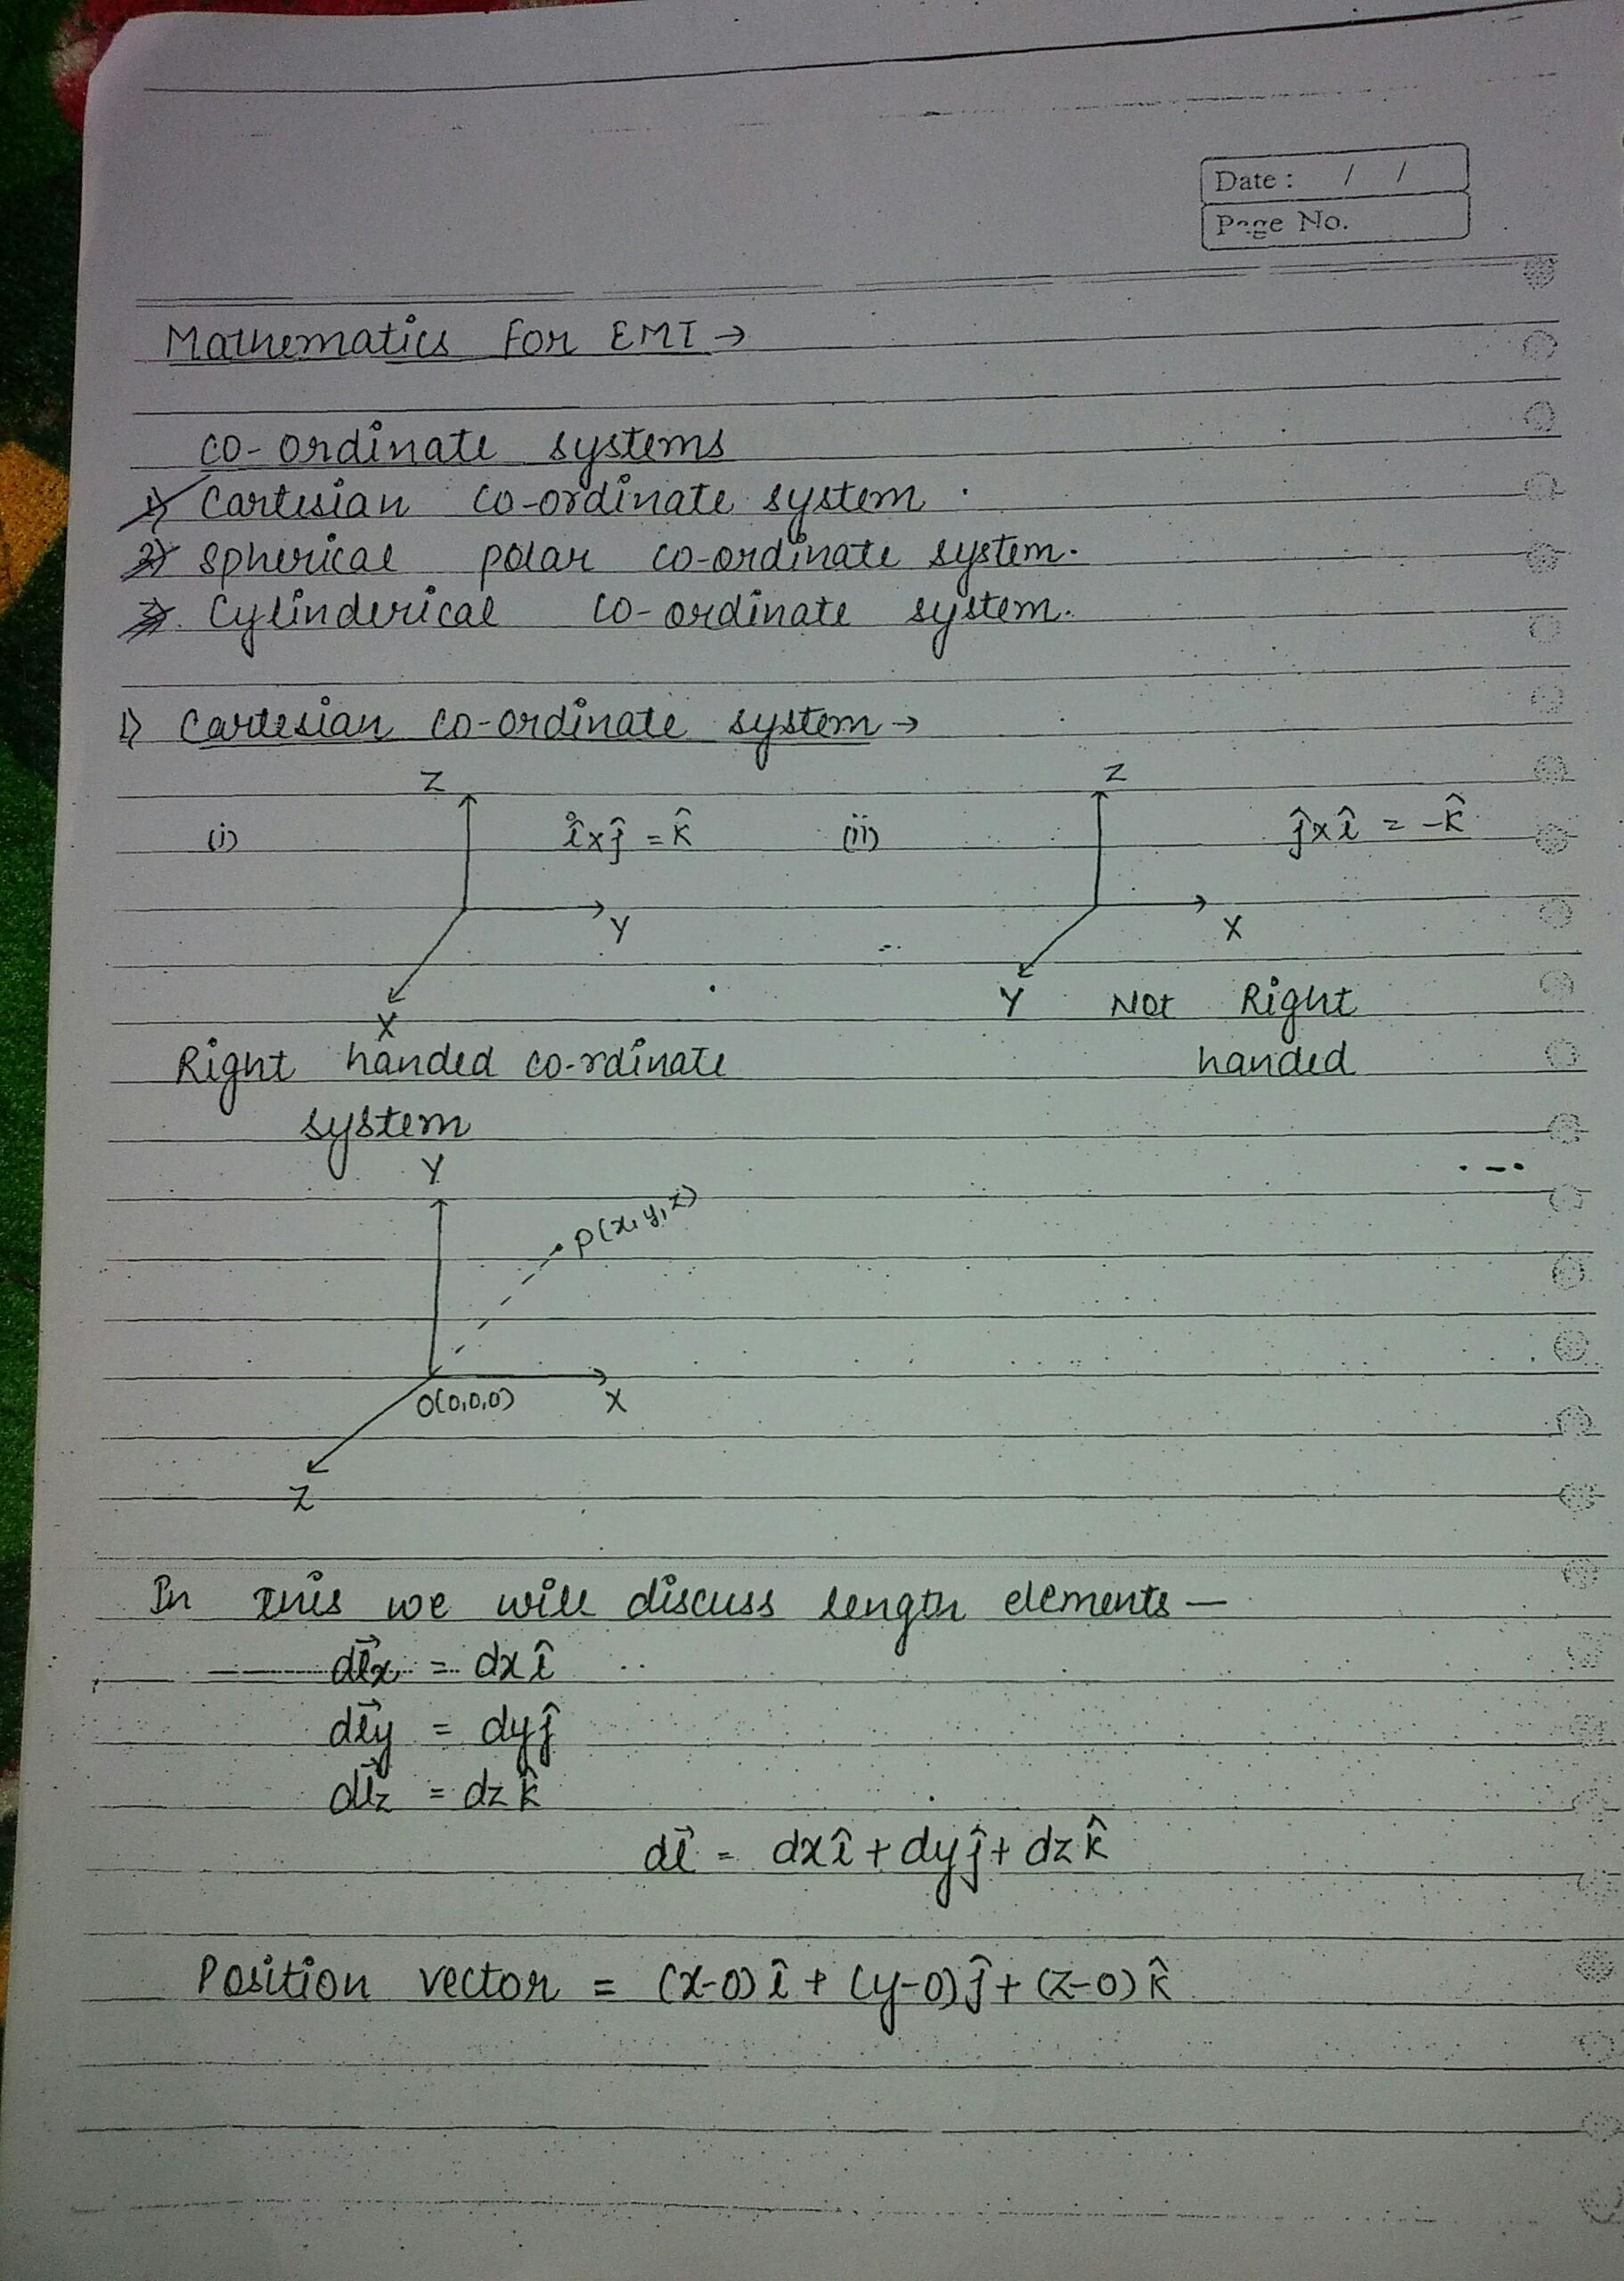 Date : / /
Page No.
Mathematics For EMI →
co-ordinate systems
1) Cartesian co-ordinate system.
2) Spherical polar co-ordinate system.
3). Cylinderical co-ordinate system.
1) Cartesian co-ordinate system →
Z Z
(i) î×ĵ = k̂ (ii) ĵ×î = -k̂
Y X
X Y Not Right
Right handed co-rdinate handed
system
Y
P(x,y,z)
O(0,0,0) X
Z
In this we will discuss length elements —
dl⃗x = dx î
dl⃗y = dy ĵ
dl⃗z = dz k̂
dl⃗ = dx î + dy ĵ + dz k̂
Position vector = (x-0) î + (y-0) ĵ + (z-0) k̂